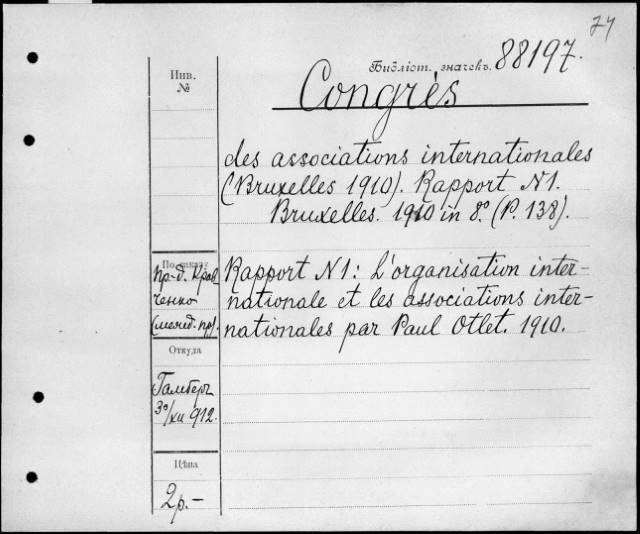 74
Библіот. значекъ. 88197.
Инв.
№
Congrès
des associations internationales
(Bruxelles 1910). Rapport N1.
Bruxelles. 1910 in 8.º (P. 138).
По заказу
Пр-д. Крав
ченко
(межд. пр).
Rapport N1: L'organisation inter-
nationale et les associations inter-
nationales par Paul Otlet. 1910.
Откуда
Гамберъ
30/XII 912.
Цѣна
2р.-